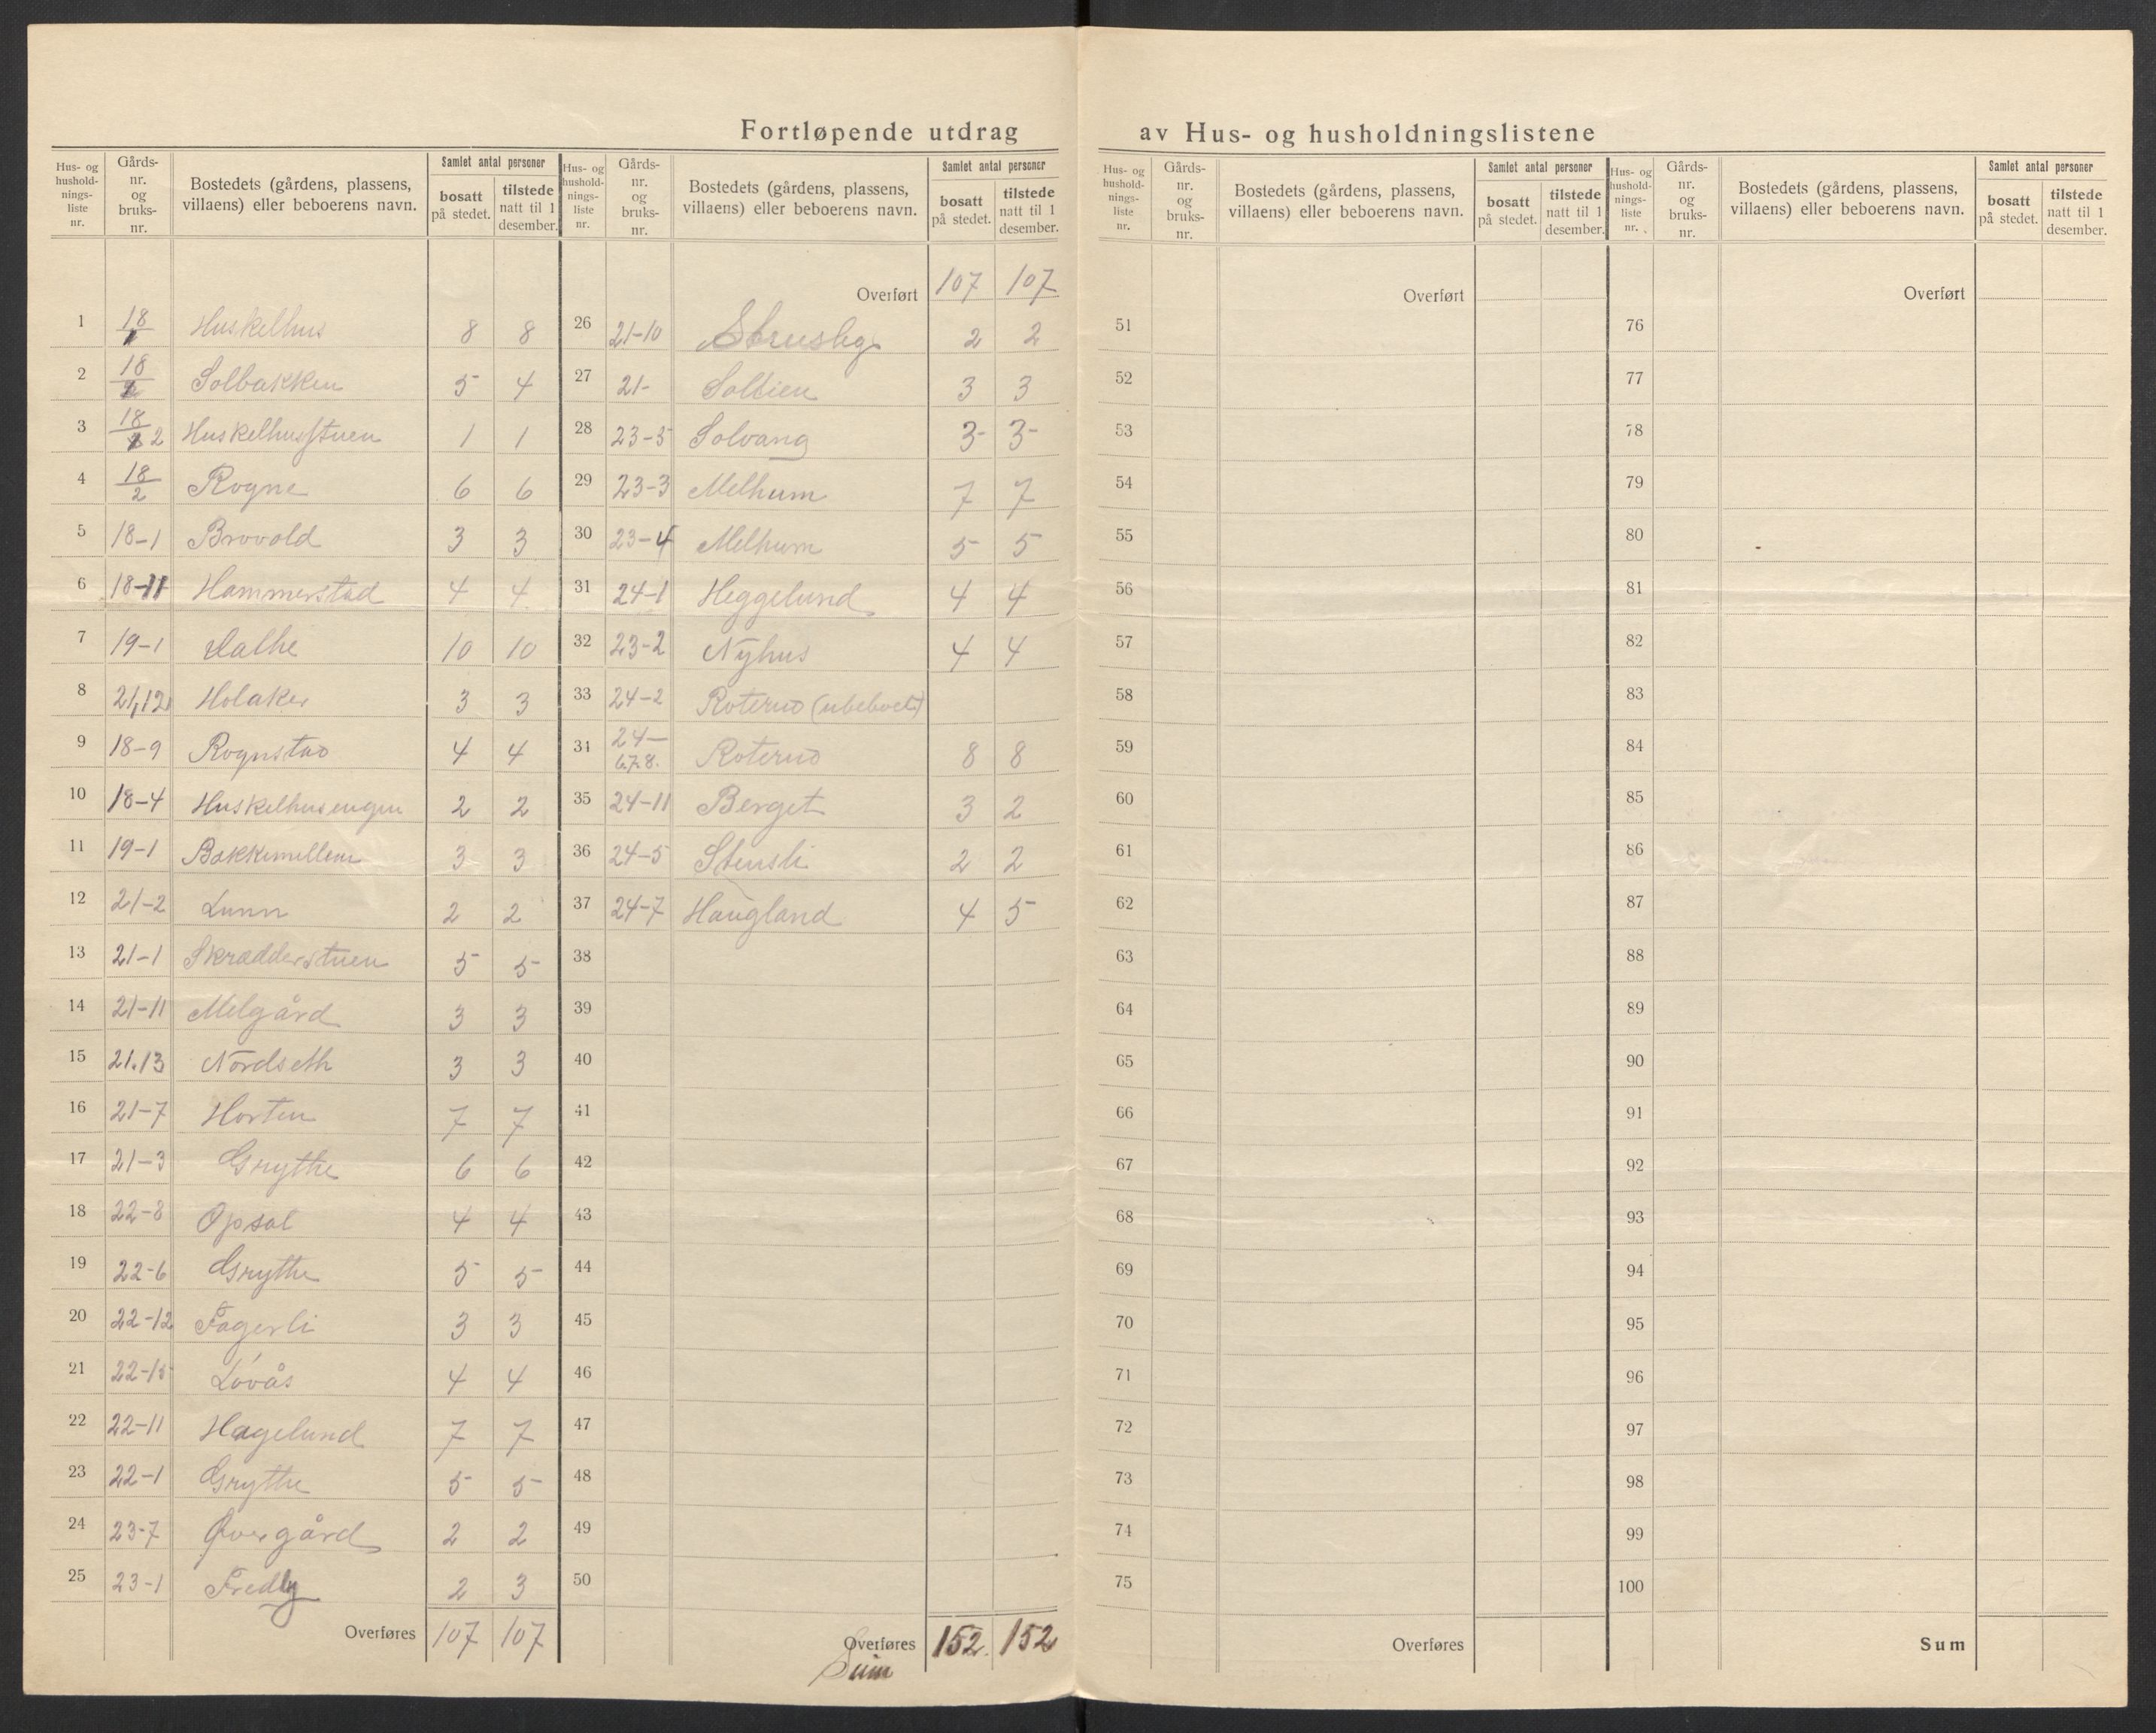 Fortløpende utdrag av Hus- og husholdningslistene
Hus- og husholdnings-liste nr. Gårds-nr. og bruks-nr. Bostedets (gårdens, plassens, villaens) eller beboerens navn. Samlet antal personer bosatt på stedet. tilstede natt til 1 desember.
1 18/1 Huskelhus 8 8
2 18 Solbakken 5 4
3 18 2 Huskelhusstuen 1 1
4 18/2 Rogne 6 6
5 18-1 Brovold 3 3
6 18-11 Hammerstad 4 4
7 19-1 Dalhe 10 10
8 21,12 Holaker 3 3
9 18-9 Rognstad 4 4
10 18-4 Huskelhusengen 2 2
11 19-1 Bakkemellem 3 3
12 21-2 Lunn 2 2
13 21-1 Skrædderstuen 5 5
14 21-11 Melgård 3 3
15 21.13 Nordseth 3 3
16 21-7 Horten 7 7
17 21-3 Grythe 6 6
18 22-8 Opsal 4 4
19 22-6 Grythe 5 5
20 22-12 Fagerli 3 3
21 22-15 Lövås 4 4
22 22-11 Hagelund 7 7
23 22-1 Grythe 5 5
24 23-7 Øvergård 2 2
25 23-1 Fredly 2 3
Overføres 107 107
Hus- og husholdnings-liste nr. Gårds-nr. og bruks-nr. Bostedets (gårdens, plassens, villaens) eller beboerens navn. Samlet antal personer bosatt på stedet. tilstede natt til 1 desember.
Overført 107 107
26 21-10 2 2
27 21- Sollien 3 3
28 23-5 Solvang 3 3
29 23-3 Melhum 7 7
30 23-4 Melhum 5 5
31 24-1 Heggelund 4 4
32 23-2 Nyhus 4 4
33 24-2 Roterud (ubeboet)
34 24-6.7.8. Roterud 8 8
35 24-11 Berget 3 2
36 24-5 Stensli 2 2
37 24-7 Haugland 4 5
38
39
40
41
42
43
44
45
46
47
48
49
50
Overføres 152. 152
Sum
Hus- og hushold-nings-liste nr. Gårds-nr. og bruks-nr. Bostedets (gårdens, plassens, villaens) eller beboerens navn. Samlet antal personer bosatt på stedet. tilstede natt til 1 desember.
Overført
51
52
53
54
55
56
57
58
59
60
61
62
63
64
65
66
67
68
69
70
71
72
73
74
75
Overføres
Hus- og hushold-nings-liste nr. Gårds-nr. og bruks-nr. Bostedets (gårdens, plassens, villaens) eller beboerens navn. Samlet antal personer bosatt på stedet. tilstede natt til 1 desember.
Overført
76
77
78
79
80
81
82
83
84
85
86
87
88
89
90
91
92
93
94
95
96
97
98
99
100
Sum